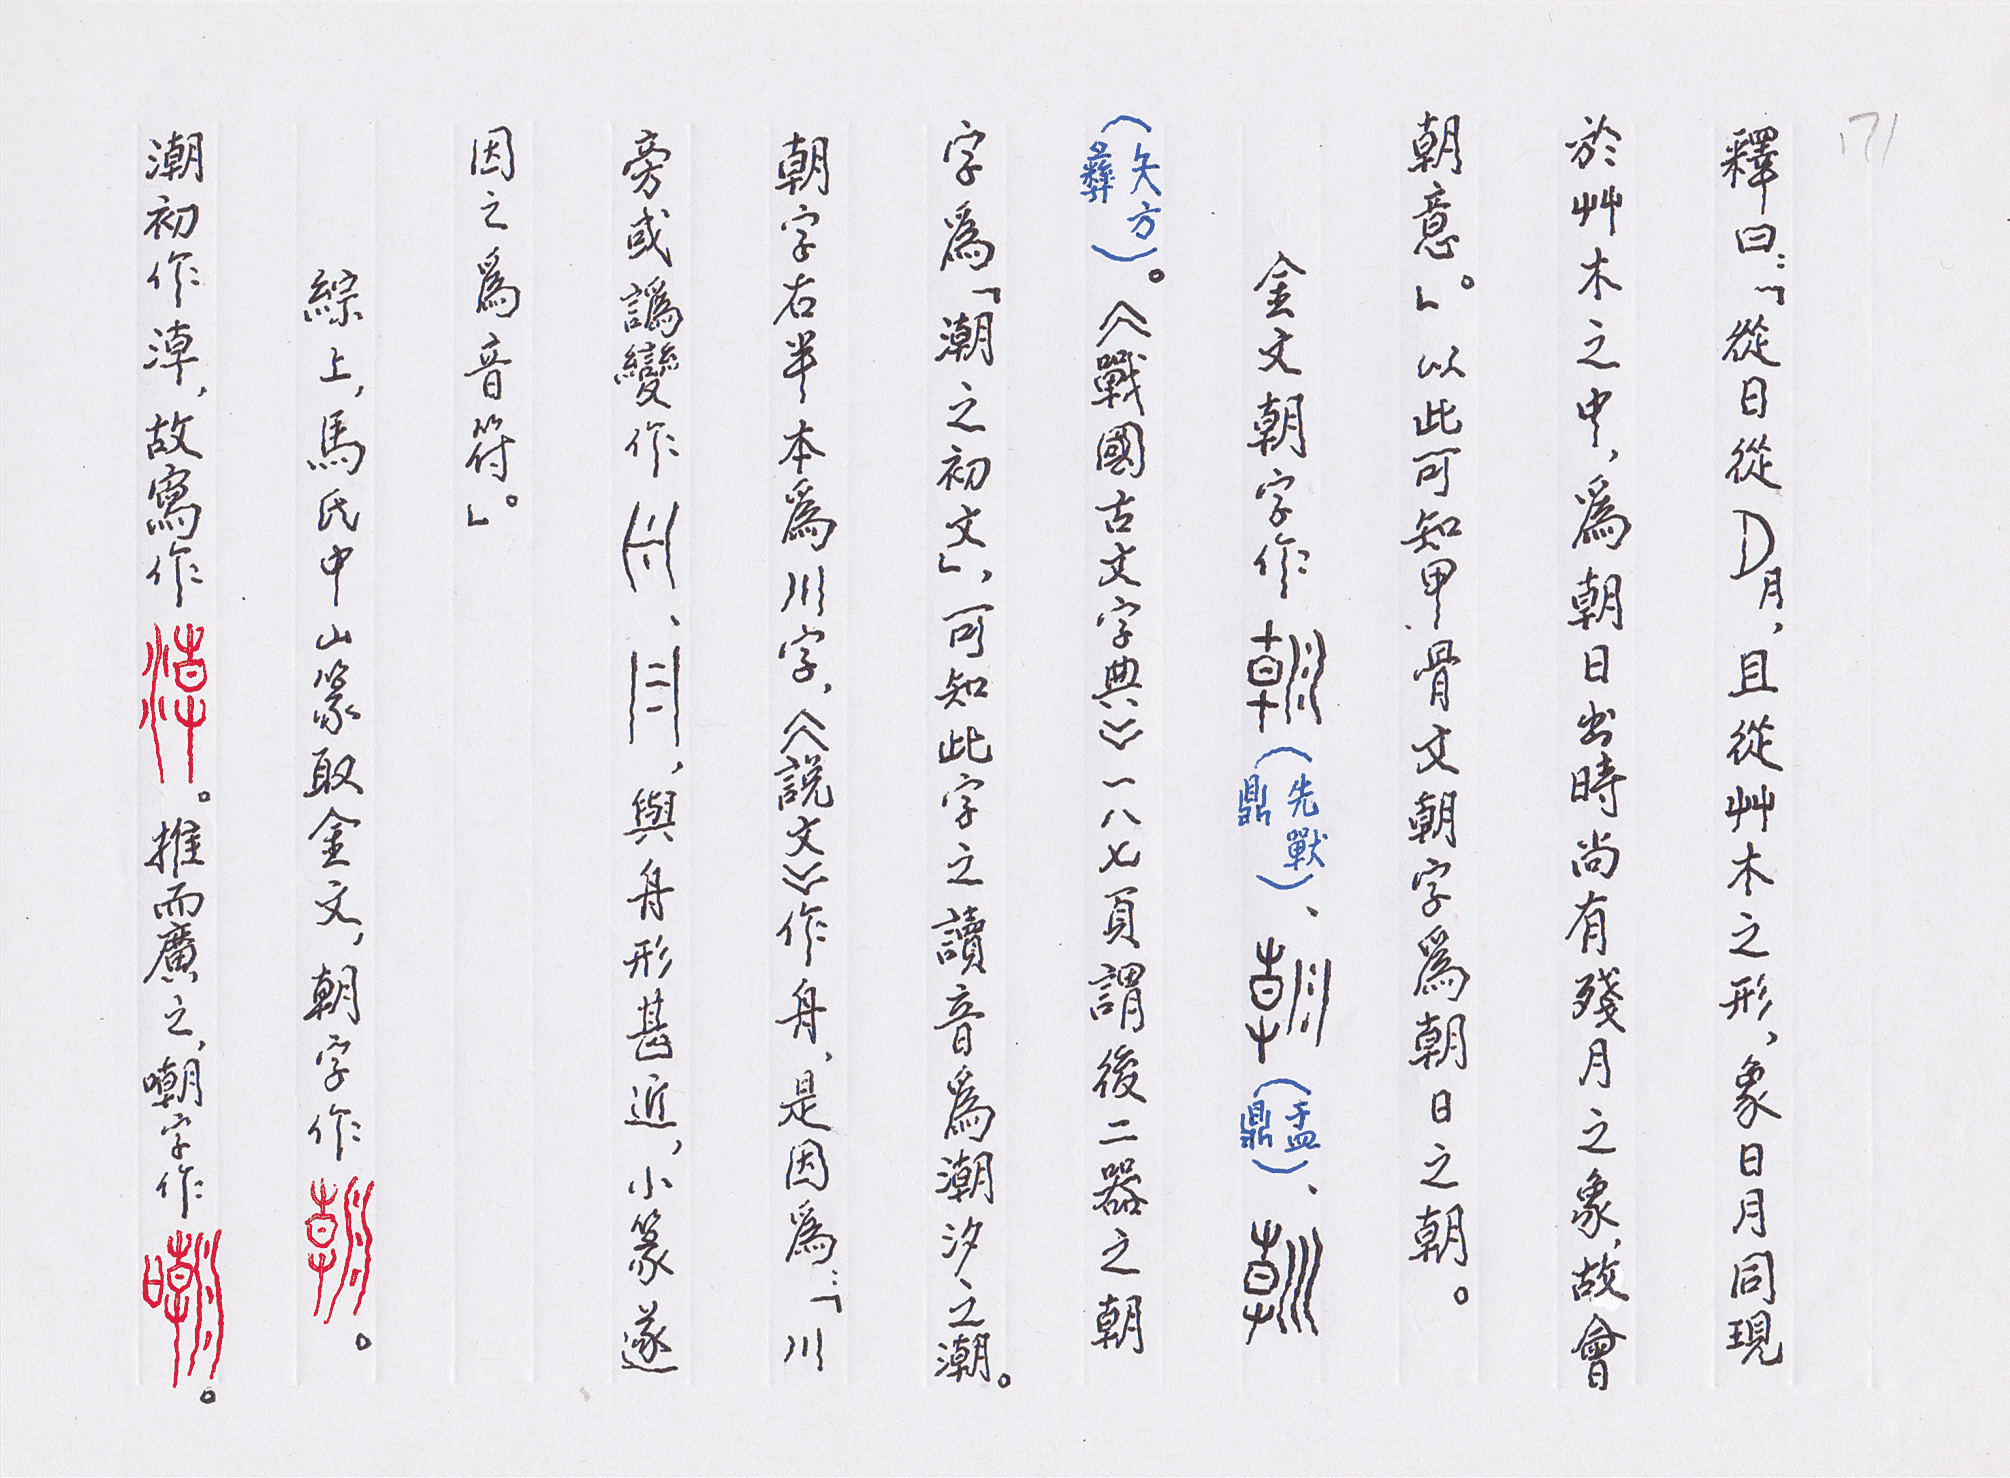 171
釋曰：「從日從月，且從艸木之形，象日月同現
於艸木之中，爲朝日出時尚有殘月之象，故會
朝意。」以此可知甲骨文朝字爲朝日之朝。
金文朝字作（先獸鼎）、（盂鼎）、
（夨方彝）。《戰國古文字典》一八七頁謂後二器之朝
字爲「潮之初文」，可知此字之讀音爲潮汐之潮。
朝字右半本爲川字，《說文》作舟，是因爲：「川
旁或譌變作、，與舟形甚近，小篆遂
因之爲音符。」
綜上，馬氏中山篆取金文，朝字作。
潮初作淖，故寫作。推而廣之，嘲字作。